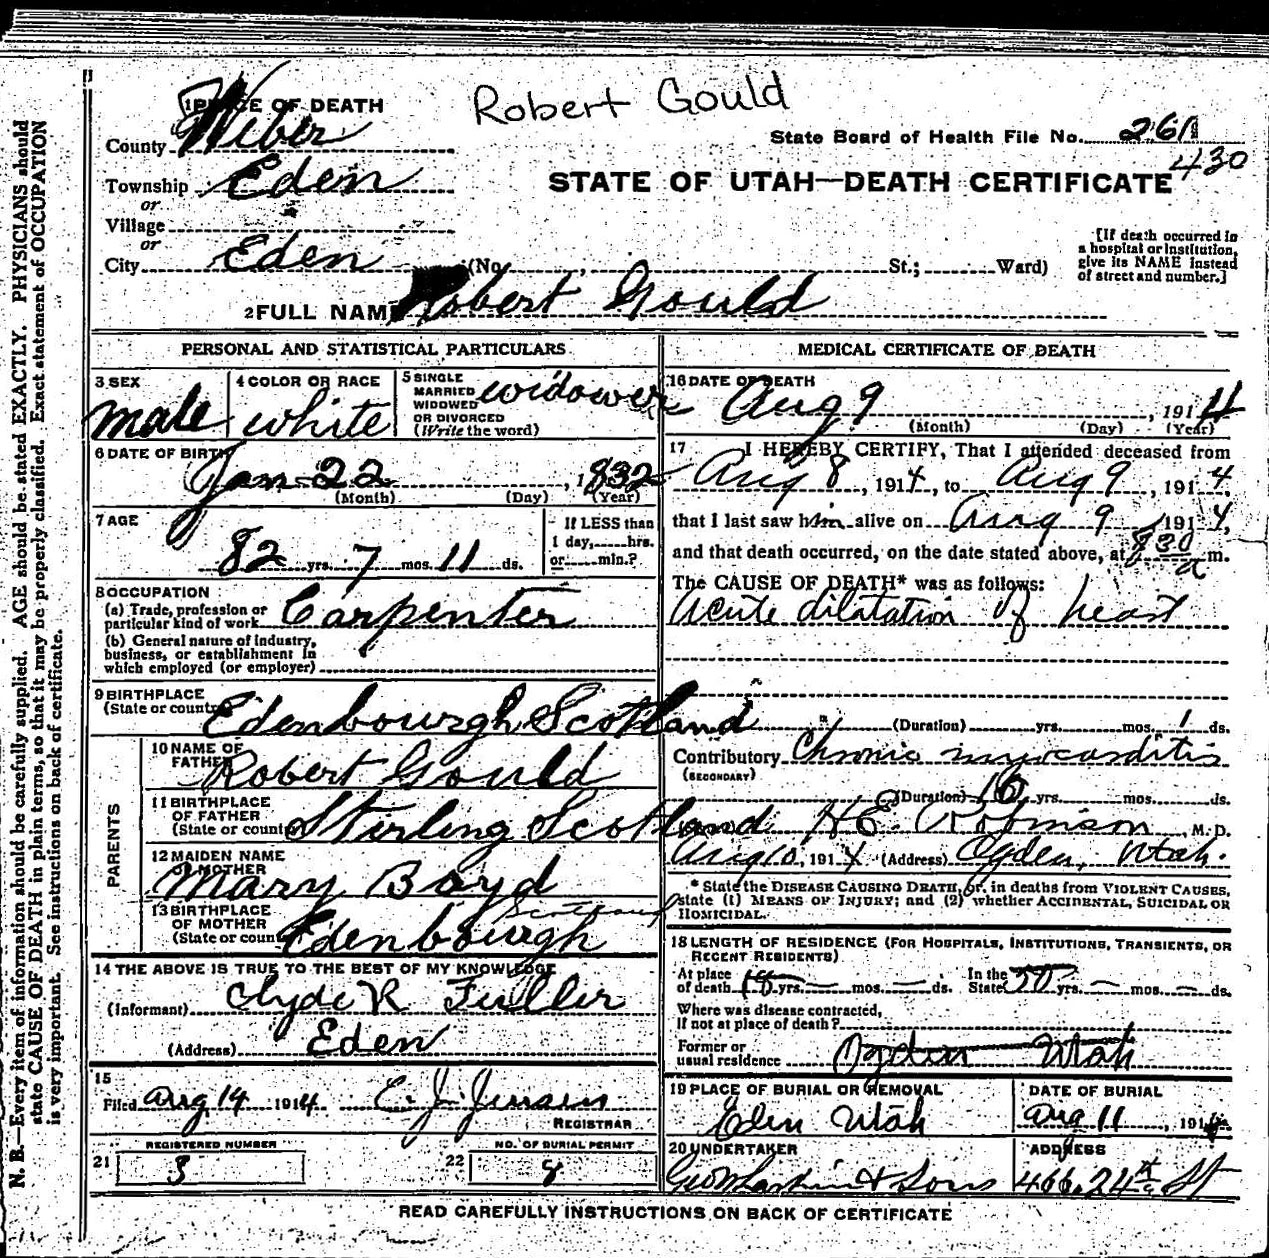 Robert Gould
1 PLACE OF DEATH
State Board of Health File No. 261
430
County Weber
Township Eden
or
Village
or
City Eden (No. , St.; Ward)
STATE OF UTAH—DEATH CERTIFICATE
[If death occurred in
a hospital or institution,
give its NAME instead
of street and number.]
2 FULL NAME Robert Gould
PERSONAL AND STATISTICAL PARTICULARS
3 SEX
male
4 COLOR OR RACE
white
5 SINGLE
MARRIED
WIDOWED
OR DIVORCED
(Write the word)
widower
6 DATE OF BIRTH
Jan 22, 1832
(Month) (Day) (Year)
7 AGE
82 yrs. 7 mos. 11 ds.
If LESS than
1 day, hrs.
or min.?
8 OCCUPATION
(a) Trade, profession or
particular kind of work Carpenter
(b) General nature of industry,
business, or establishment in
which employed (or employer)
9 BIRTHPLACE
(State or country) Edenbourgh Scotland
PARENTS
10 NAME OF
FATHER Robert Gould
11 BIRTHPLACE
OF FATHER
(State or country) Stirling Scotland
12 MAIDEN NAME
OF MOTHER Mary Boyd
13 BIRTHPLACE
OF MOTHER
(State or country) Edenbourgh Scotland
14 THE ABOVE IS TRUE TO THE BEST OF MY KNOWLEDGE
(Informant) Clyde R Fuller
(Address) Eden
15
Filed Aug 14 1914 E. J. Jensen
REGISTRAR
REGISTERED NUMBER
21 3
NO. OF BURIAL PERMIT
22 8
MEDICAL CERTIFICATE OF DEATH
16 DATE OF DEATH
Aug 9, 1914
(Month) (Day) (Year)
17 I HEREBY CERTIFY, That I attended deceased from
Aug 8, 1914, to Aug 9, 1914,
that I last saw him alive on Aug 9 1914,
and that death occurred, on the date stated above, at 8 30 a m.
The CAUSE OF DEATH* was as follows:
Acute dilitation of heart
(Duration) yrs. mos. 1 ds.
Contributory Chronic myocarditis
(SECONDARY)
(Duration) 10 yrs. mos. ds.
H E. Robinson, M. D.
Aug 10, 1914 (Address) Ogden, Utah.
* State the DISEASE CAUSING DEATH, or, in deaths from VIOLENT CAUSES,
state (1) MEANS OF INJURY; and (2) whether ACCIDENTAL, SUICIDAL OR
HOMICIDAL.
18 LENGTH OF RESIDENCE (FOR HOSPITALS, INSTITUTIONS, TRANSIENTS, OR
RECENT RESIDENTS)
At place
of death yrs. — mos. — ds. In the
State 50 yrs. — mos. — ds.
Where was disease contracted,
if not at place of death?
Former or
usual residence Ogden Utah
19 PLACE OF BURIAL OR REMOVAL
Eden Utah
DATE OF BURIAL
Aug 11, 1914
20 UNDERTAKER
Geo W Larkin & Sons
ADDRESS
466. 24th St
READ CAREFULLY INSTRUCTIONS ON BACK OF CERTIFICATE
N. B.—Every item of information should be carefully supplied. AGE should be stated EXACTLY. PHYSICIANS should
state CAUSE OF DEATH in plain terms, so that it may be properly classified. Exact statement of OCCUPATION
is very important. See instructions on back of certificate.